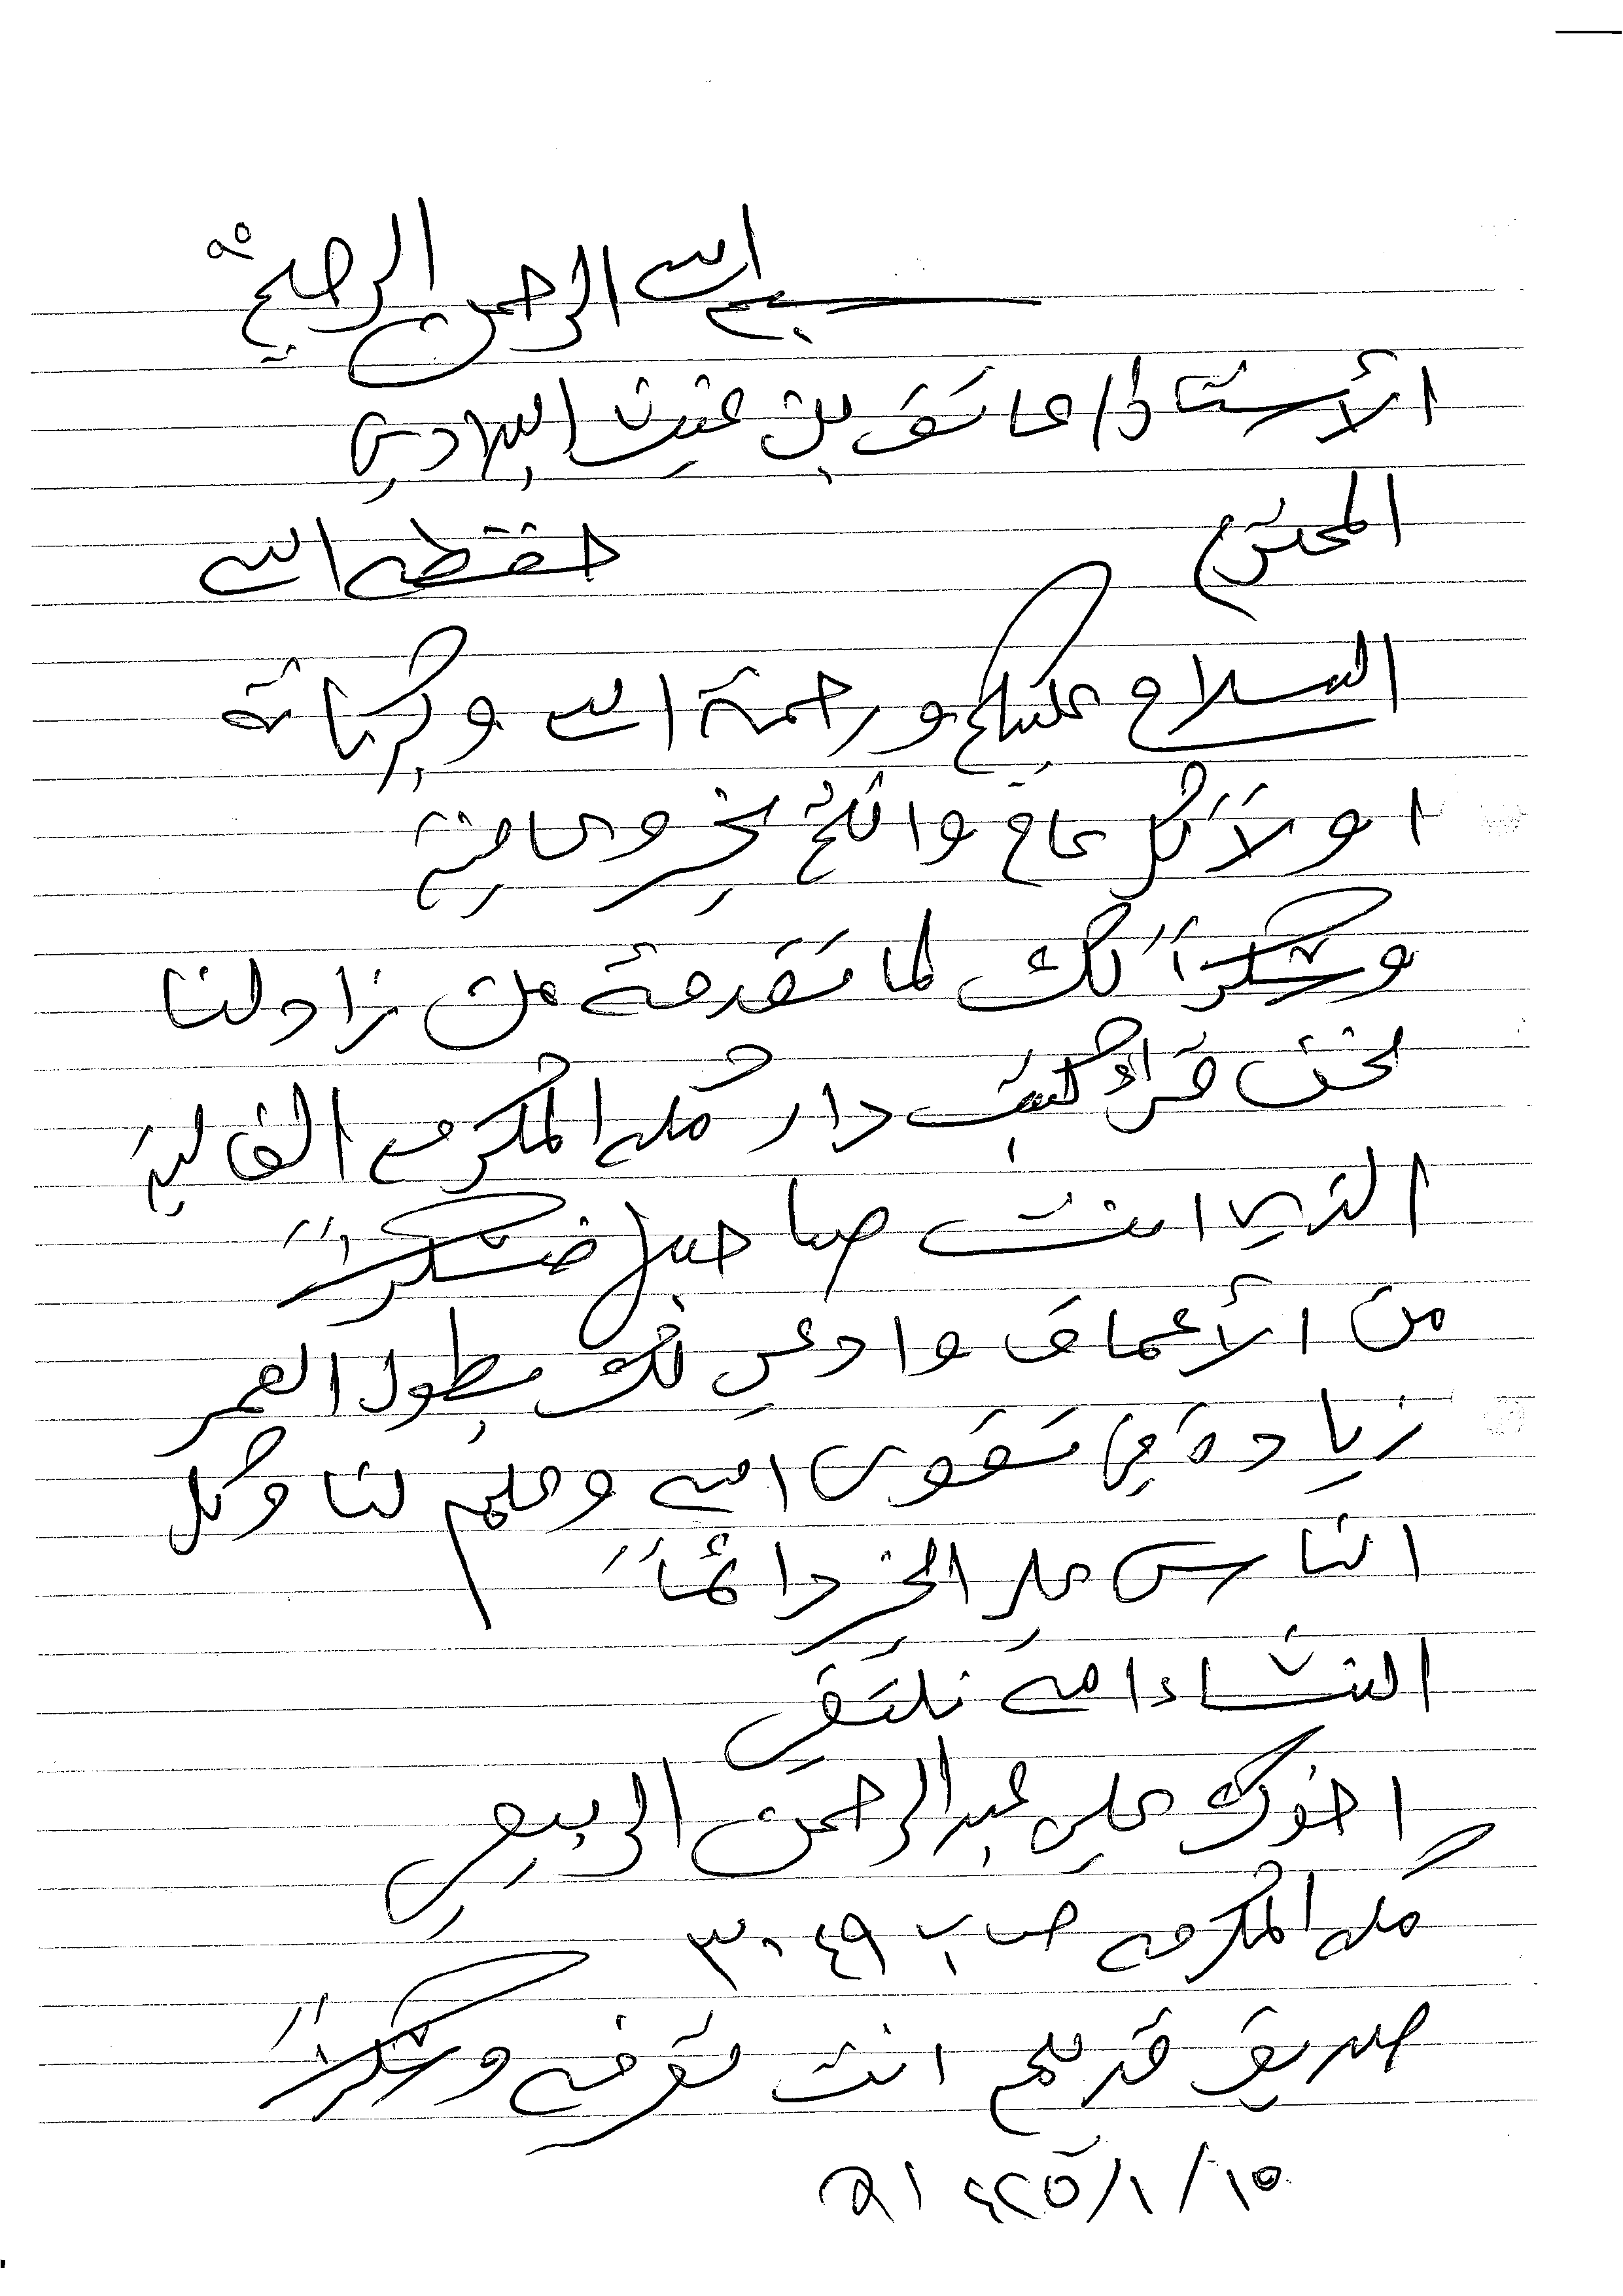 ٩٥
بسم الله الرحمن الرحيم
الأستاذ/ عاتق بن غيث البلادي
المحترم حفظه الله
السلام عليكم ورحمة الله وبركاتة
اولاً كل عام وانتم بخير وعافية
وشكراً لك لما تقدمة من زاد لنا
نحن قراء كتب دار مكه المكرمه الغالية
التي انت صاحبها فشكراً
من الأعماق وادعي لك بطول العمر
زيادة في تقوى الله وعلم لنا وكل
الناس على الخير دائماً
انشاء الله نلتقي
اخوك علي عبدالرحمن الربيعي
مكه المكرمه ص ب ٣٠٤٩
صديق قديم انت تعرفه وشكراً
١٥/١/١٤٢٥هـ